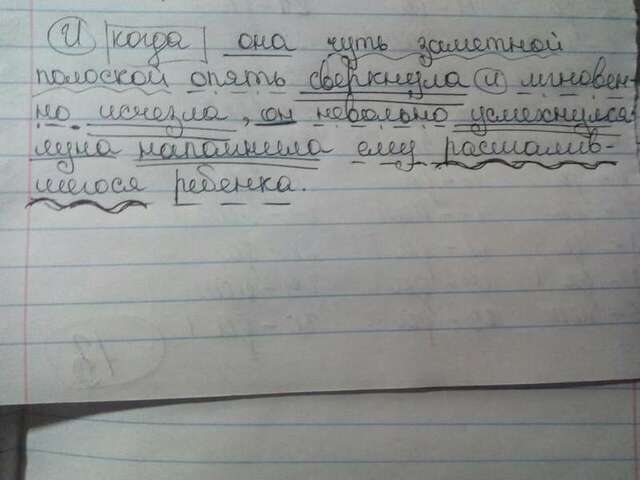 И когда она чуть заметной
полоской опять сверкнула и мгновен-
но исчезла, он невольно усмехнулся:
луна напомнила ему расшалив-
шегося ребенка.